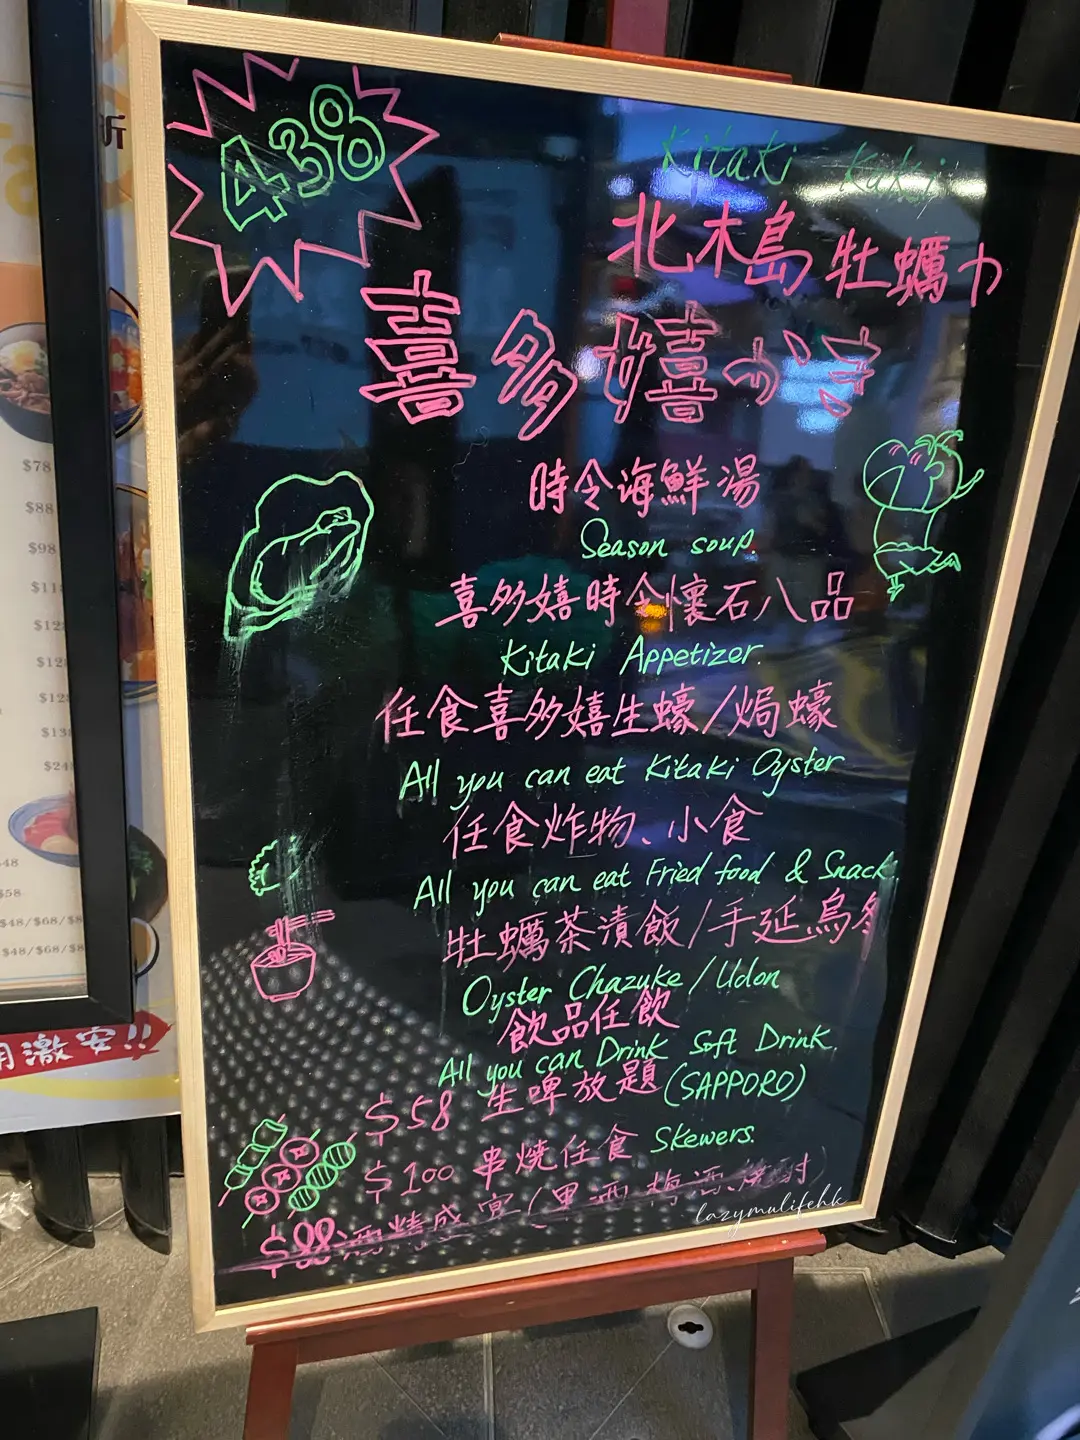 438
Kitaki Kaki
北木島 牡蠣カ
喜多嬉かき
時令海鮮湯
Season soup.
喜多嬉時令懷石八品
Kitaki Appetizer.
任食喜多嬉生蠔/焗蠔
All you can eat Kitaki Oyster
任食炸物、小食
All you can eat Fried food & Snack.
牡蠣茶漬飯/手延烏冬
Oyster Chazuke / Udon
飲品任飲
All you can Drink Soft Drink.
$58 生啤放題(SAPPORO)
$100 串燒任食 Skewers.
lazymulifehk
$78
$88
$98
$48
$58
$48/$68/$8
$48/$68/$8
激安!!